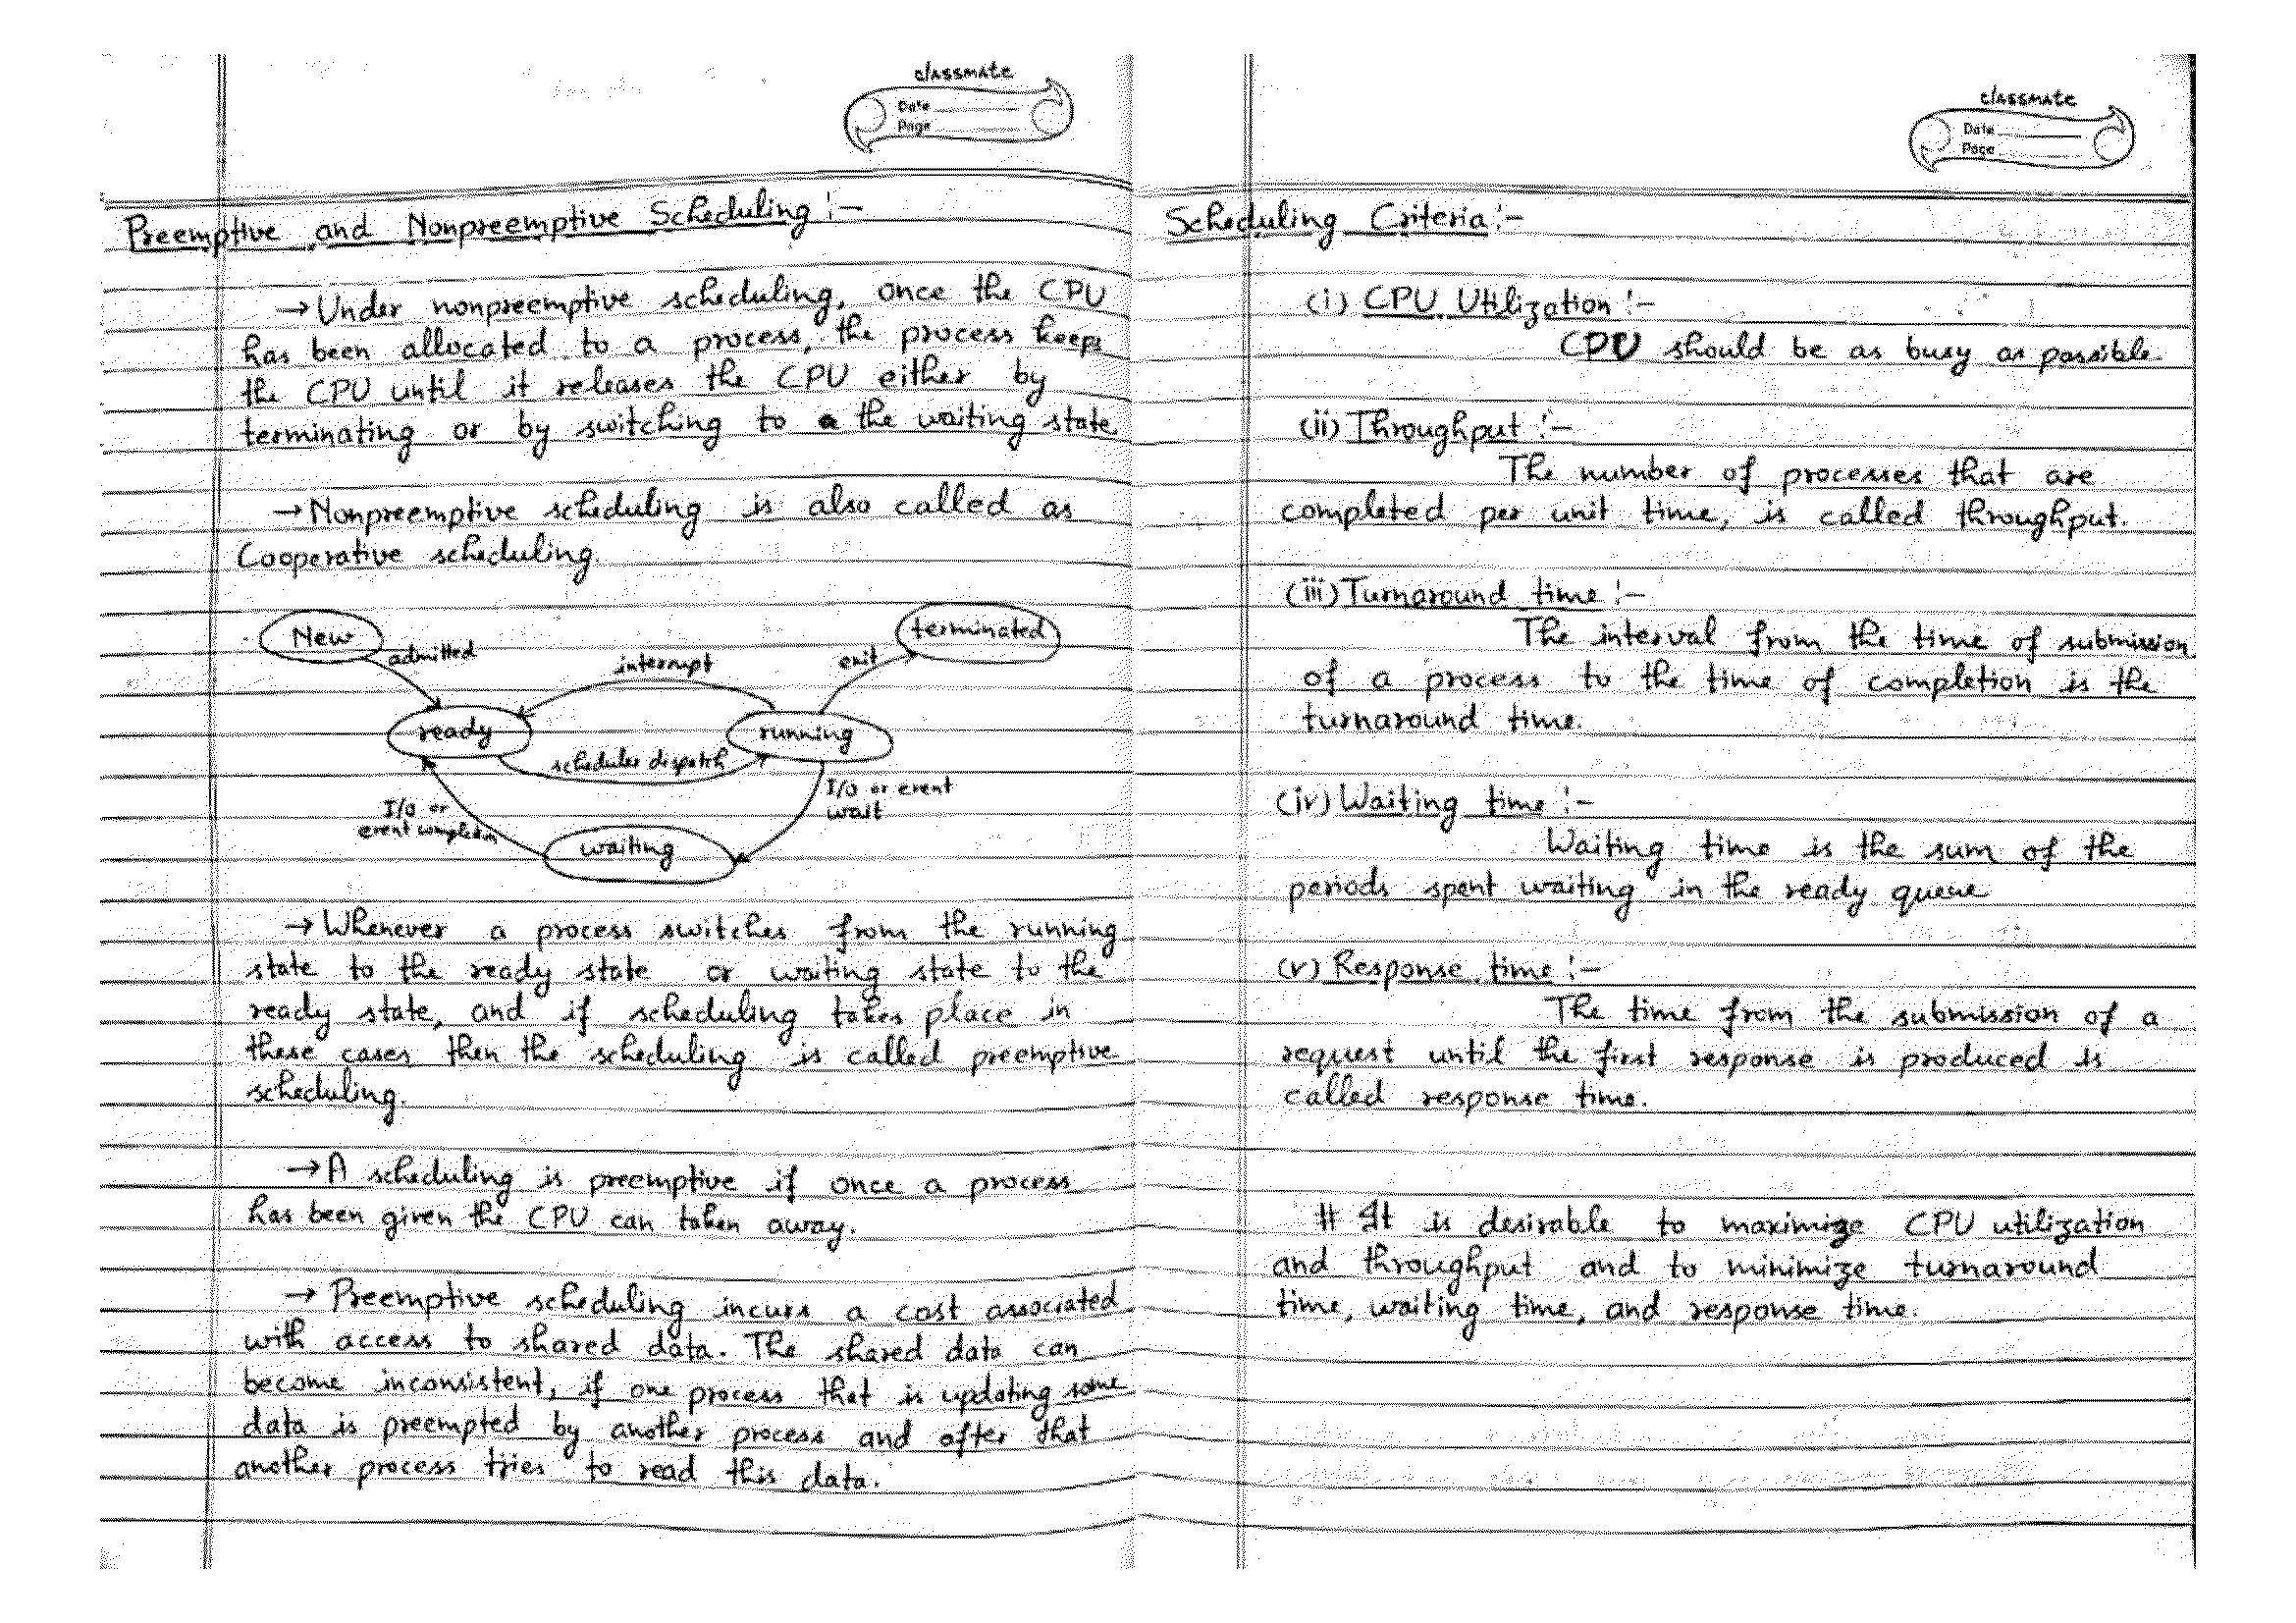 classmate
Date
Page
Preemptive and Nonpreemptive Scheduling :-
→ Under nonpreemptive scheduling, once the CPU
has been allocated to a process, the process keeps
the CPU until it releases the CPU either by
terminating or by switching to the waiting state.
→ Nonpreemptive scheduling is also called as
Cooperative scheduling.
New
terminated
admitted
interrupt
exit
ready
running
scheduler dispatch
I/O or event
wait
I/O or
event completion
waiting
→ Whenever a process switches from the running
state to the ready state or waiting state to the
ready state, and if scheduling takes place in
these cases then the scheduling is called preemptive
scheduling.
→ A scheduling is preemptive if once a process
has been given the CPU can taken away.
→ Preemptive scheduling incurs a cost associated
with access to shared data. The shared data can
become inconsistent, if one process that is updating some
data is preempted by another process and after that
another process tries to read this data.
classmate
Date
Page
Scheduling Criteria :-
(i) CPU Utilization :-
CPU should be as busy as possible.
(ii) Throughput :-
The number of processes that are
completed per unit time, is called throughput.
(iii) Turnaround time :-
The interval from the time of submission
of a process to the time of completion is the
turnaround time.
(iv) Waiting time :-
Waiting time is the sum of the
periods spent waiting in the ready queue
(v) Response time :-
The time from the submission of a
request until the first response is produced is
called response time.
# It is desirable to maximize CPU utilization
and throughput and to minimize turnaround
time, waiting time, and response time.